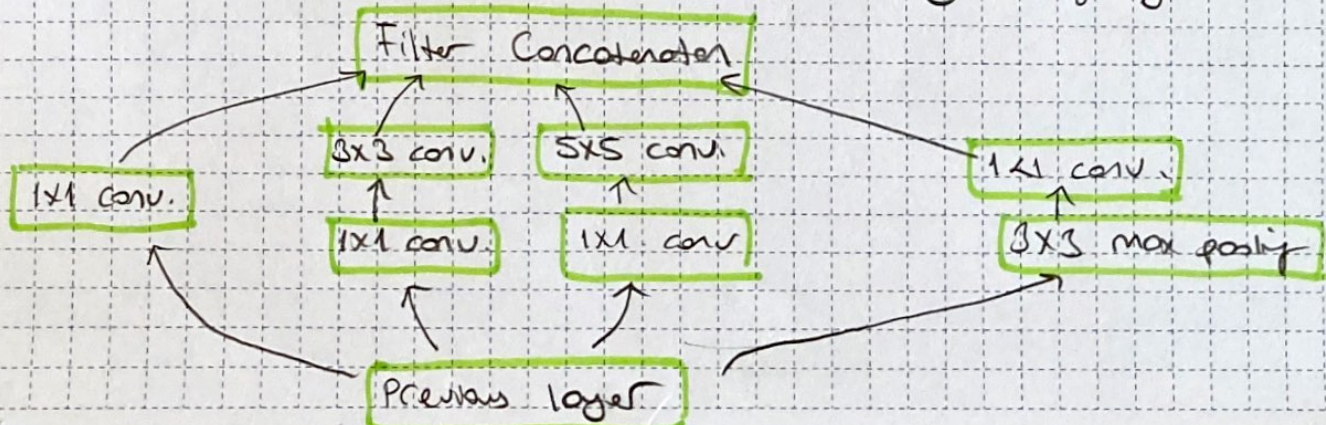 Filter Concatenation
3x3 conv.
5x5 conv.
1x1 conv.
1x1 conv.
1x1 conv.
1x1 conv
3x3 max pooling
Previous layer